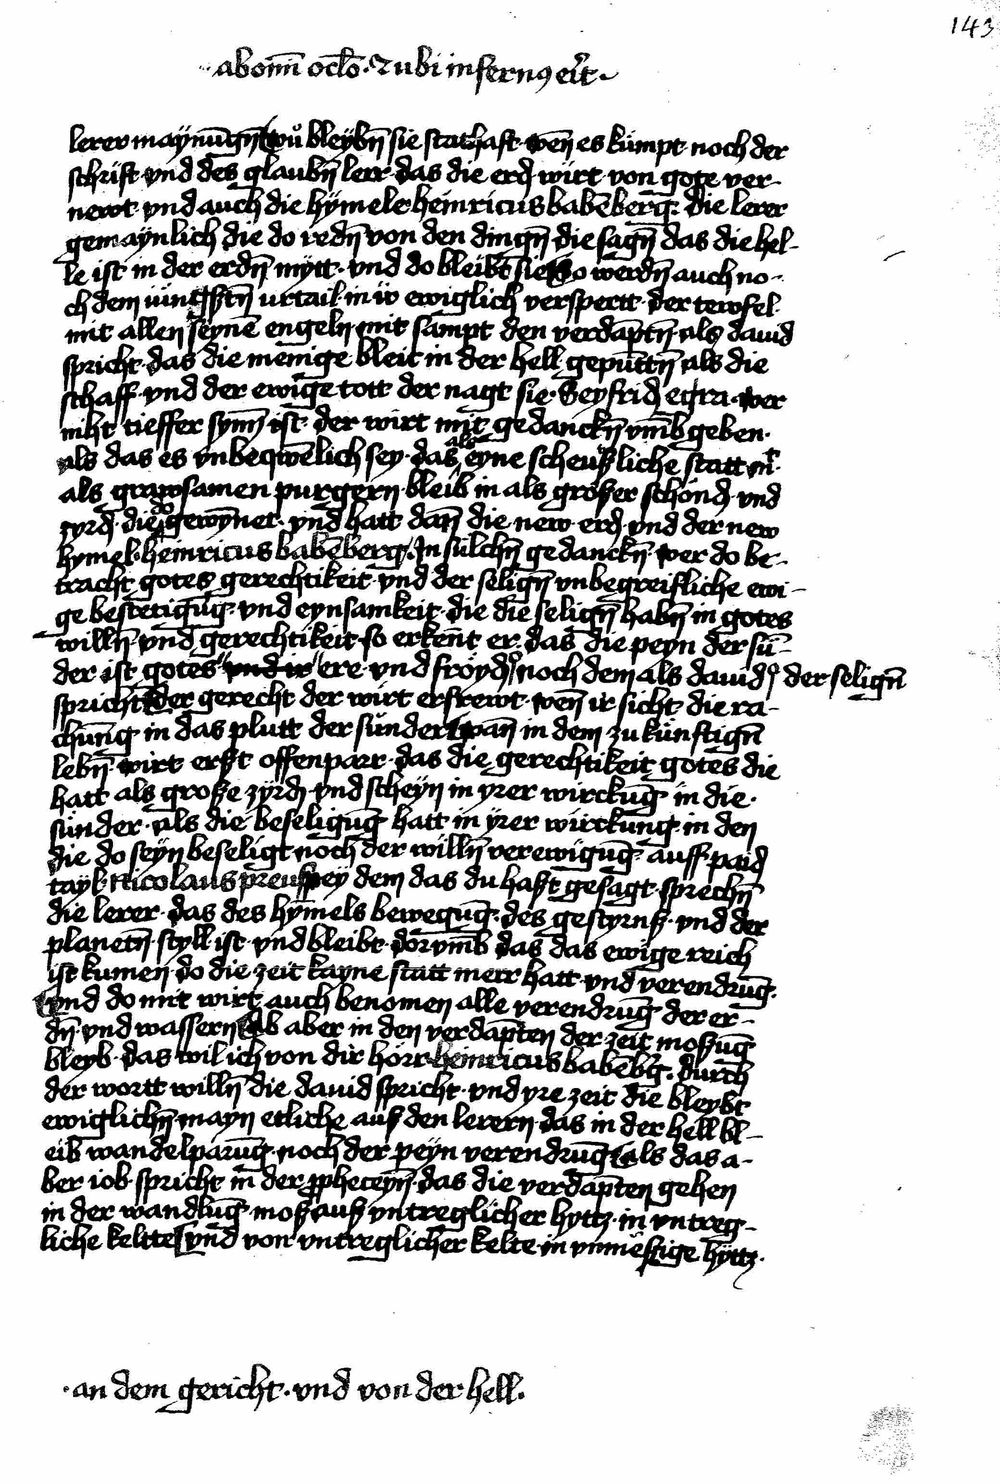 143
ab omi oclo · Z ubi infernꝯ erit ·
lerer maynūgn̄ wů bleybn̄ sie stathaft wen̄ es kůmpt noch der
schrift vnd des glaubn̄ lerr das die erd wirt von gote ver-
newt · vnd auch die hymele · heinricus babēberg : die lerer
gemaynlich die do redn̄ von den dingn̄ die sagn̄ das die hel-
le ist in der erdn̄ mytt · vnd do bleibt sie so werdn̄ auch no-
ch dem iungstn̄ urtail in ir ewiglich verspertt · der tewfel
mit allen seynē engeln mit sampt den verdāptn̄ als dauid
spricht · das die menige bleit in der hell gepuntn̄ als die
schaff · vnd der ewige tott der nagt sie · Seyfrid egra · wer
niht tieffer synn̄ ist · der wirt mit gedanckn̄ vmb geben ·
als das es vnbeqwēlich sey · das als eyne scheußliche statt mt
als grawsamen purgern bleib in als großer schönd vnd
zyrd · die do gewynnet · vnd hatt dan̄ die new erd vnd der new
hymel · heinricus babēberg · In sulchn̄ gedanckn̄ wer do be-
tracht gotes gerechtikeit vnd der selign̄ vnbegreifliche ewi-
ge bestetigūg · vnd eynsamkeit · die die selign̄ habn̄ in gotes
willn̄ · vnd gerechtikeit · so erkent er · das die peyn der sū-
der ist gotes vnd ir ere · vnd fröyd noch dem als dauid der selign̄
spricht der gerecht der wirt erfrewt · wen̄ ir sicht die ra-
chūng in das plutt der sünder wan̄ in dem zu künftign̄
lebn̄ wirt erst offenparr · das die gerechtikeit gotes die
hatt als große zyrd · vnd scheyn in yrer wirckūg in die ·
sünder · als die beseligūg hatt in yrer würckung in den
die do seyn beseligt noch der willn̄ verewigūg · auff paid
tayl · Nicolaus preuß pey dem das du hast gesagt · sprechn̄
die lerer · das des hymels bewegūg · des gestyrnß · vnd der
planetn̄ · styll ist · vnd bleibt · dorvmb das das ewige reich
ist kumen · do die zeit kayne statt merr hatt · vnd verendrūg ·
vnd do mit wirt auch benomen alle verendrūg der er-
dn̄ · vnd wassern ob aber in den verdāpten der zeit moßūg
bleyb · das wil ich von dir hörr · heinricus babēbg · durch
der wortt willn̄ die dauid spricht · vnd yre zeit die bleybt
ewiglichn̄ · mayn etliche auß den lerern das in der hell bl-
eib wandelparūg · noch der peyn verendrūg als das a-
ber iob spricht in der propheceyn̄ · das die verdāpten gehen
in der wandlūg · moß auß vntreglicher hytz · in vntreg-
liche keltte vnd von vntreglicher kelte · in vnmeßige hytz ·
· an dem gericht · vnd von der hell ·